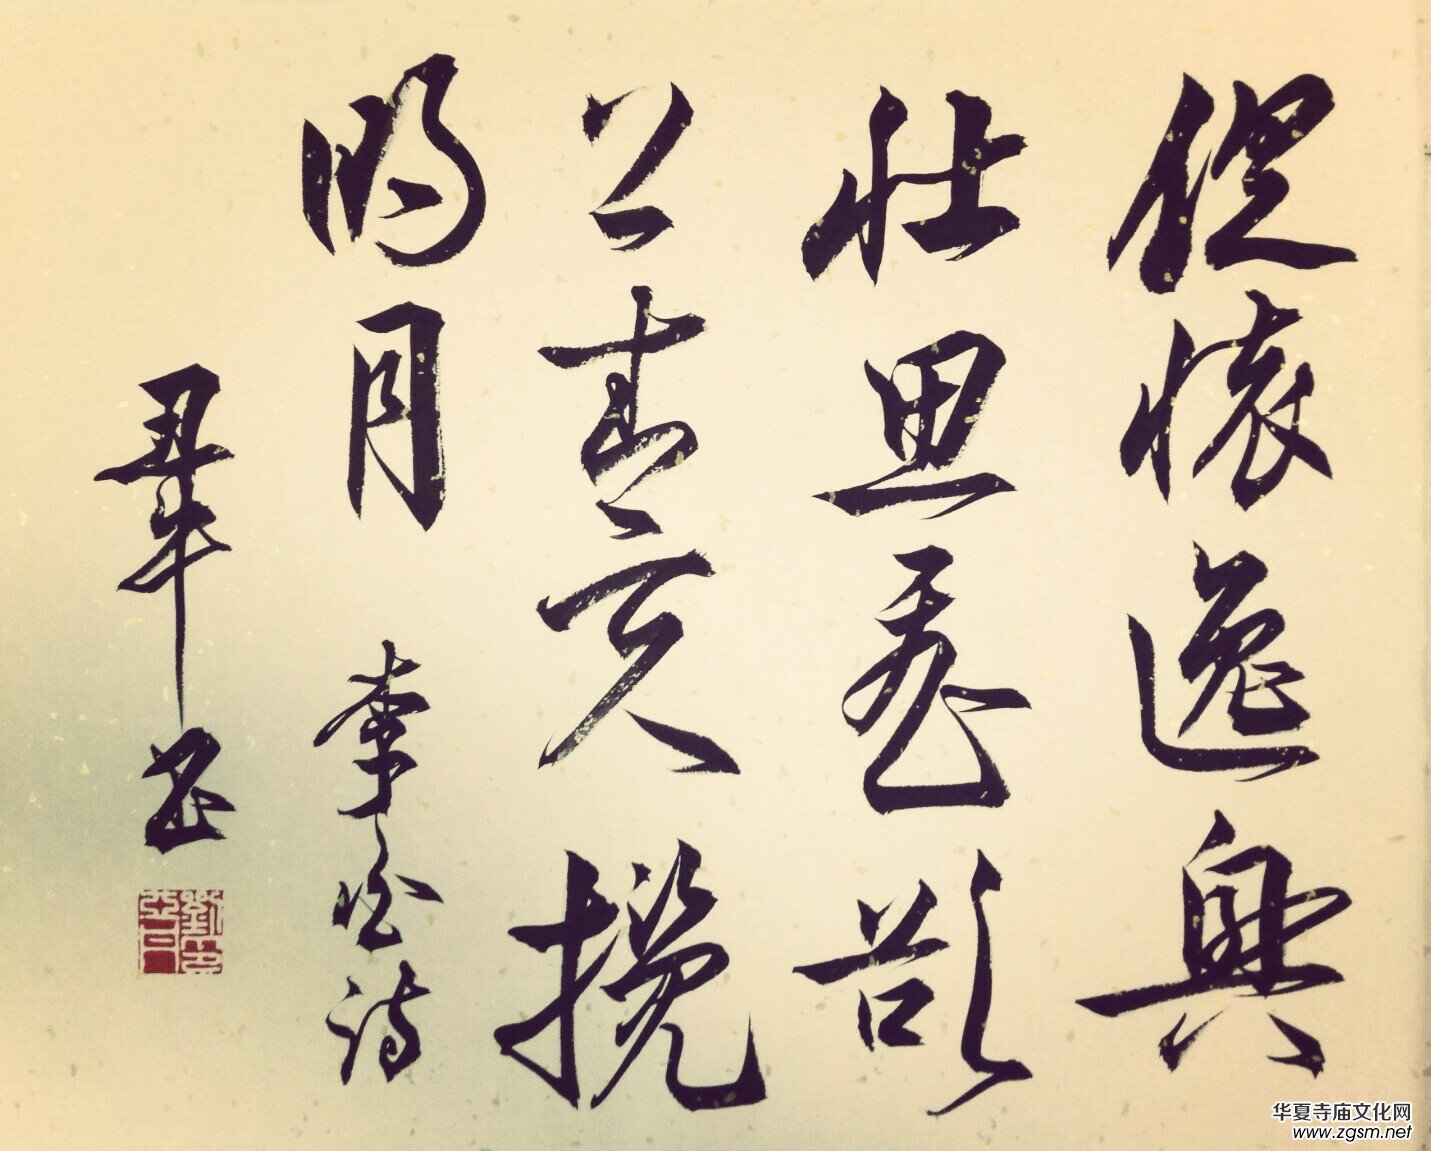 俱懷逸興
壯思飛欲
上青天攬
明月 李白詩
书
华夏寺庙文化网
www.zgsm.net